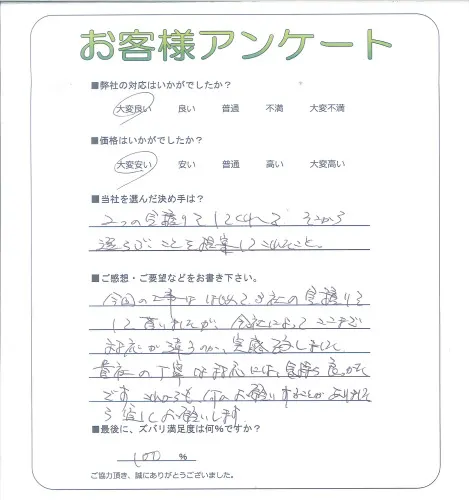 お客様アンケート
■弊社の対応はいかがでしたか？
大変良い 良い 普通 不満 大変不満
■価格はいかがでしたか？
大変安い 安い 普通 高い 大変高い
■当社を選んだ決め手は？
2つの見積りをしてくれる そこから
選らぶことを提案してくれたこと。
■ご感想・ご要望などをお書き下さい。
今回の工事ははじめて3社の見積りを
して貰いましたが、会社によってここまで
対応が違うのか、実感致しまして
貴社の丁寧な対応には、気持ち良かった
です これからも、何かお願いすることがありまし
たら宜しくお願いします
■最後に、ズバリ満足度は何%ですか？
100 %
ご協力頂き、誠にありがとうございました。